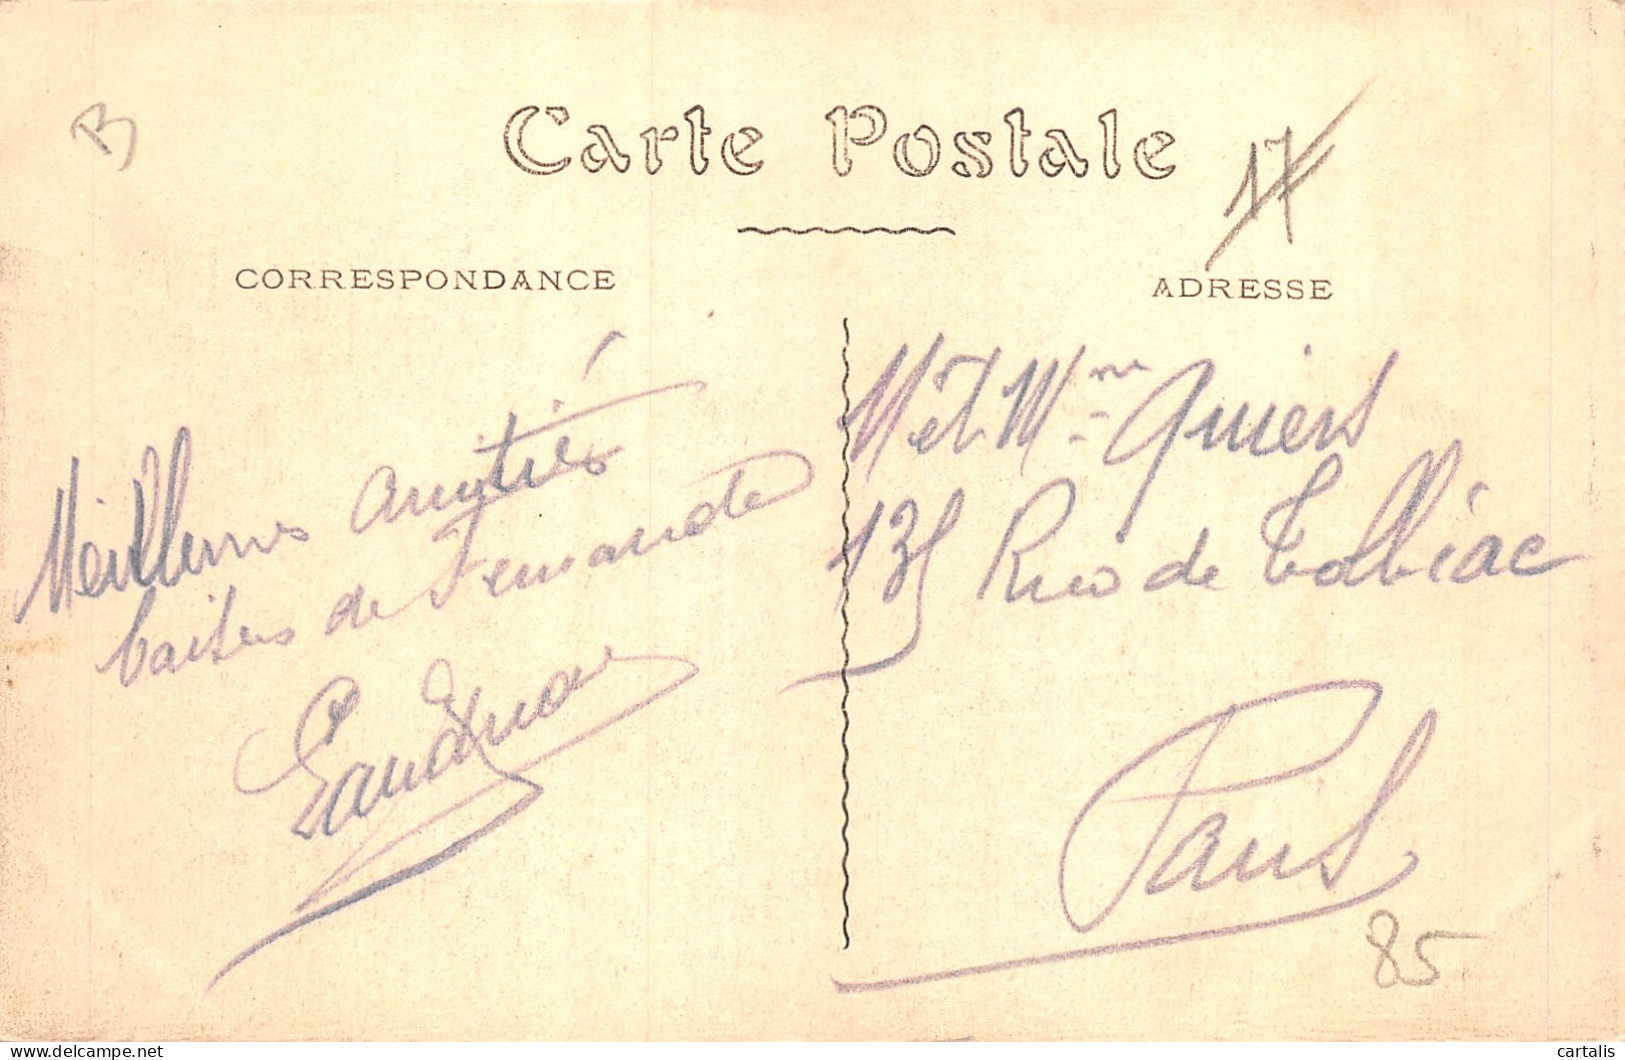 B
Carte Postale
17
CORRESPONDANCE
ADRESSE
Meilleures amitiés
baisers de Fernande
M et Mme Quiers
135 Rue de Tolbiac
Paris
85
cartalis